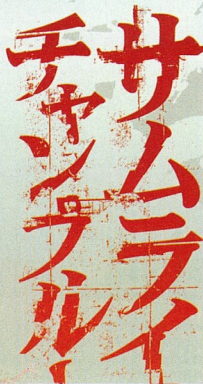 サムライ
チャンプルー